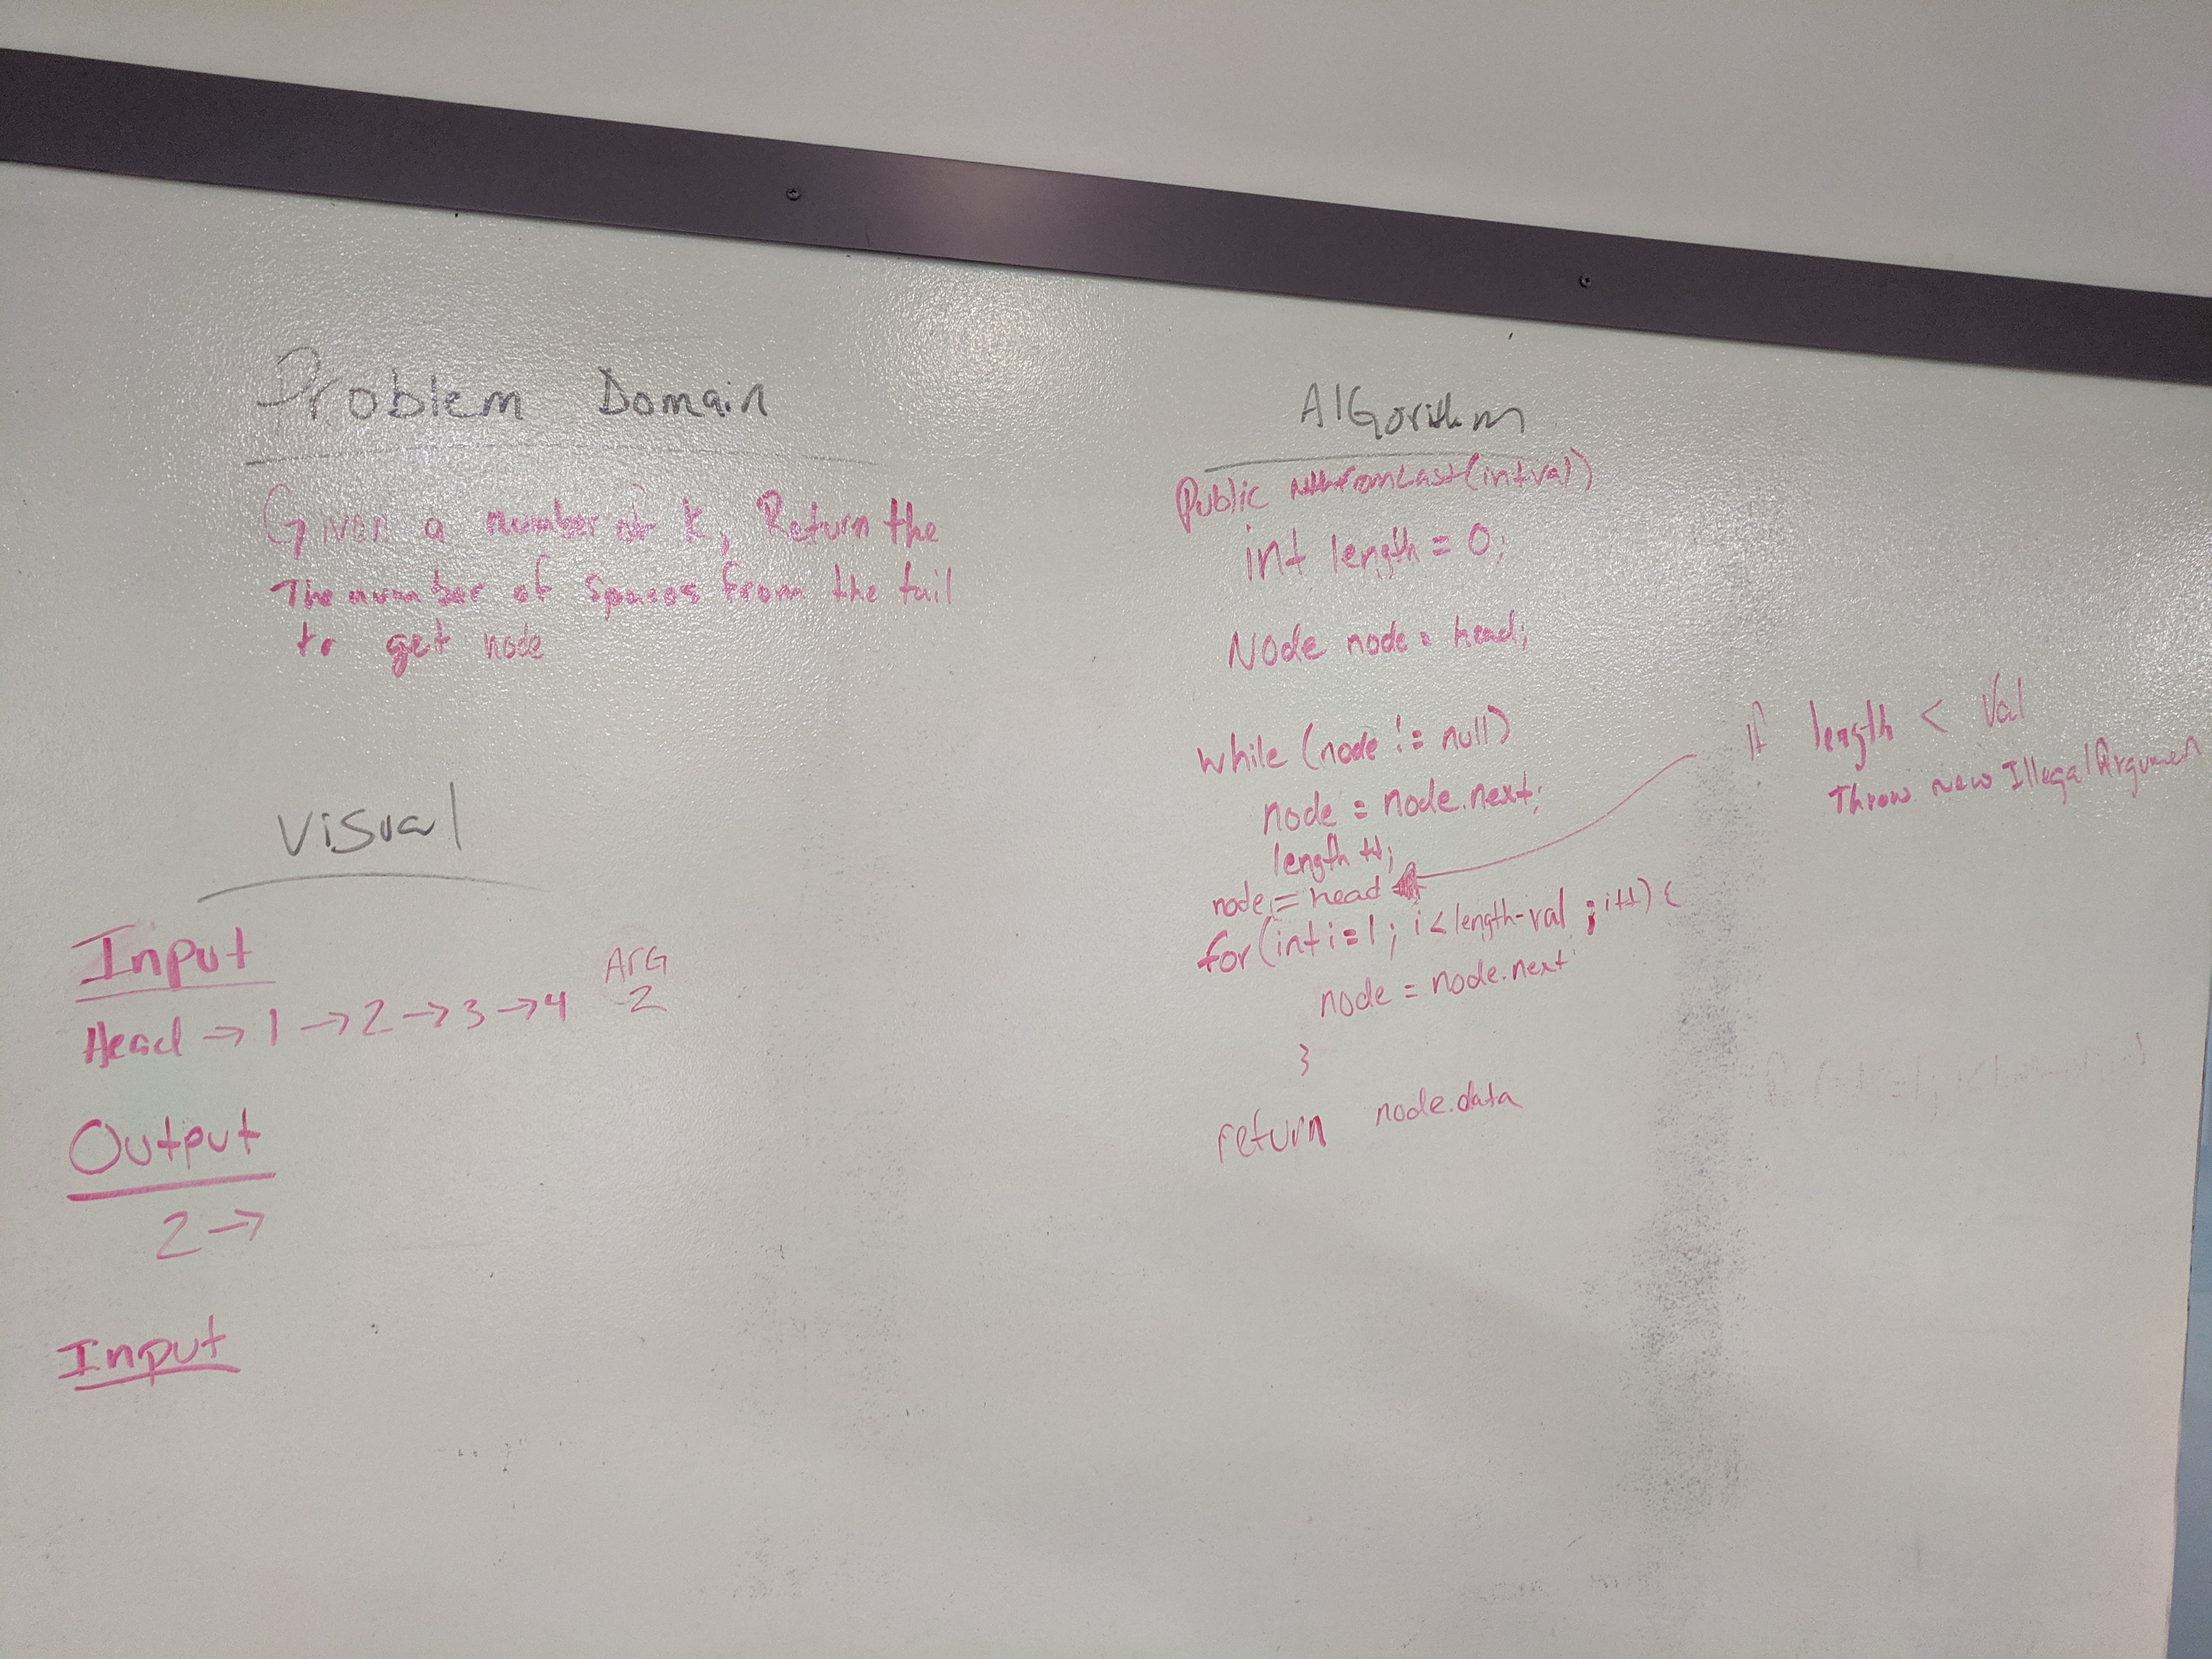 Problem Domain
Given a number of k, Return the
The number of spaces from the tail
to get node
Visual
Input
Head → 1 → 2 → 3 → 4
ArG
2
Output
2 →
Input
AlGorithm
Public nthfromLast(int val)
int length = 0;
Node node = head;
while (node != null)
node = node.next;
length ++;
node = head
for (int i = 1; i < length-val ; i++) {
node = node.next
}
return node.data
If length < Val
Throw new IllegalArgumen